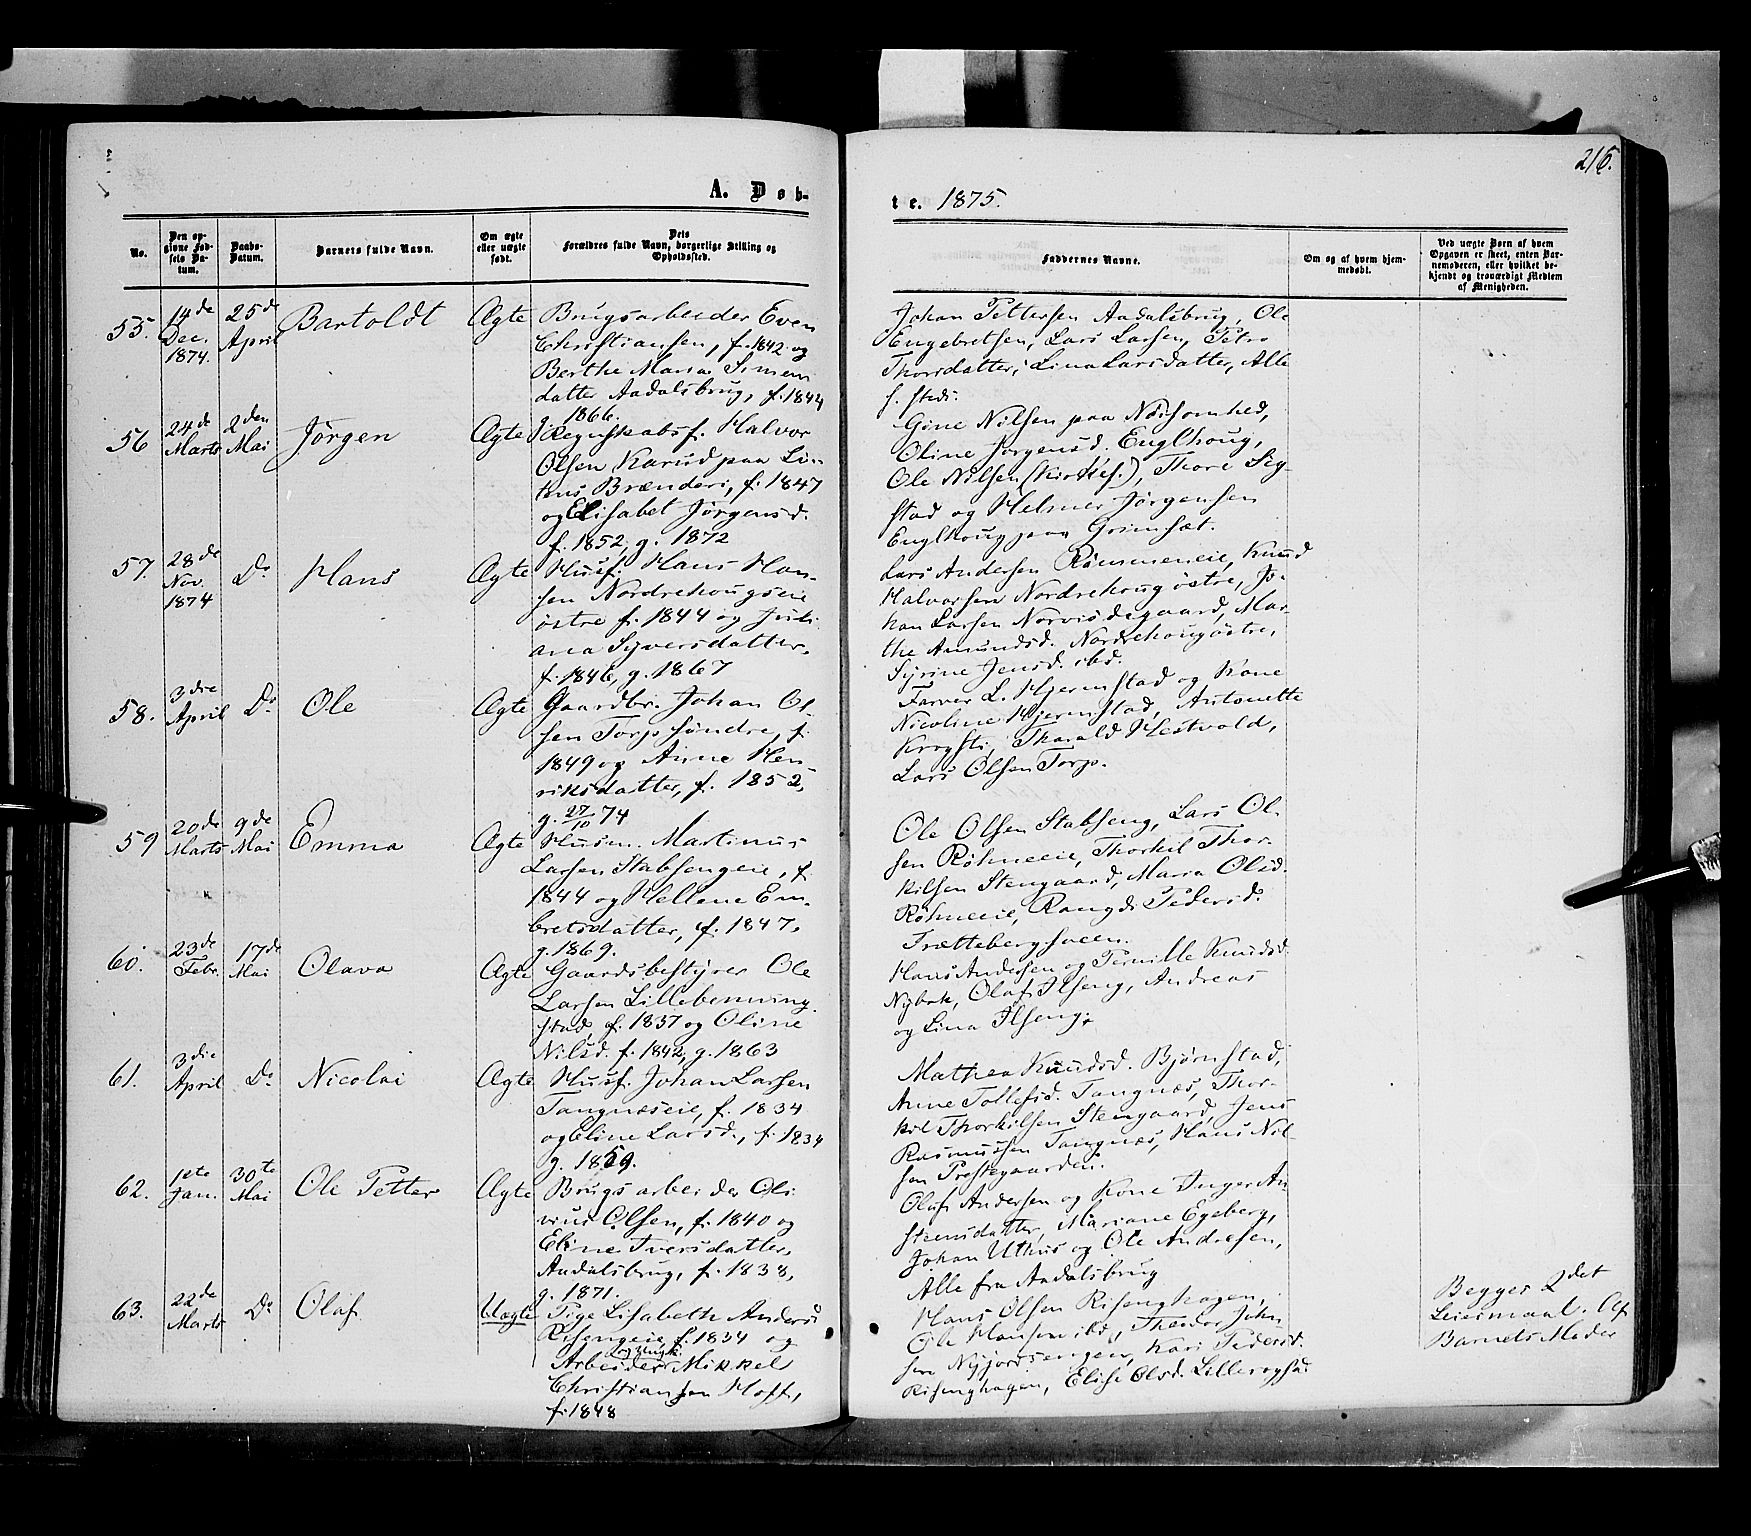 216.
A. Døb-
te. 1875.
No.
Den op-
givne Fød-
sels Da-
tum.
Daabs-
Datum.
Barnets fulde Navn.
Om ægte
eller uægte
født.
Dets
Forældres fulde Navn, borgerlige Stilling og
Opholdssted.
Faddernes Navne.
Om og af hvem hjem-
medøbt.
Ved uægte Børn af hvem
Opgaven er skeet, enten Bar-
nemoderen, eller hvilket be-
kjendt og troværdigt Medlem
af Menigheden.
55.
14de
Dec.
1874.
25de
April
Bartoldt
Ægte
Brugsarbeider Even
Christiansen, f. 1842 og
Berthe Maria Simens
datter Aadalsbrug, f. 1844
g. 1866.
Johan Pettersen Aadalsbrug, Ole
Engebretsen, Lars Larsen, Petra
Thorsdatter, Lina Larsdatter, Alle
s. steds.
56
24de
Marts
2den
Mai
Jørgen
Ægte
Regnskabsf. Halvor
Olsen Karud paa Li-
hus Brænderi, f. 1847
og Elisabet Jørgensd.
f. 1852, g. 1872
Gine Nilsen paa Næsomhed,
Oline Jørgensd. Englhoug,
Ole Nilsen (Kirkes.), Thore Sig-
stad og Helmer Jørgensen
Englhoug paa Grimsæt.
57.
28de
Nov.
1874
Do
Hans
Ægte
Husf. Hans Han-
sen Nordrehougseie
østre f. 1844 og Juli
ana Syversdatter,
f. 1846, g. 1867
Lars Andersen Rømmeneie, Knud
Halvorsen Nordrehoug østre, Jo-
han Larsen Norvisdegaard, Mar-
the Amundsd. Nordrehoug østre,
Syrine Jensd. ibd.
58.
3die
April
Do
Ole
Ægte
Gaardbr. Johan Ol-
sen Torp søndre, f.
1849 og Anne Hen-
riksdatter, f. 1852,
g. 27/10 74
Farver L. Hjermstad og Kone
Nicoline Hjermstad, Antonette
Krogsti, Tharald Hestvold,
Lars Olsen Torp.
59
20de
Marts
9de
Mai
Emma
Ægte
Husm. Martinus
Larsen Stabsengeie, f.
1844 og Hellene Em-
bretsdatter, f. 1847,
g. 1869.
Ole Olsen Stabseng, Lars Ol-
sen Røhneeie, Thorkil Thor-
kilsen Stengaard, Maria Olsd.
Røhneeie, Rangdi Pedersd.
Trættebergsveen.
60.
23de
Febr.
17de
Mai
Olava
Ægte
Gaardsbestyrer Ole
Larsen Lillebenning
stad, f. 1837 og Oline
Nilsd. f. 1842, g. 1863
Hans Andersen og Pernille Knudsd.
Nybak, Olaf Ilseng, Andreas
og Lina Ilseng.
61.
3die
April
Do
Nicolai
Ægte
Husf. Johan Larsen
Tangnæseie, f. 1834
og Eline Larsd., f. 1834
g. 1859.
Mathea Knudsd. Bjørnstad,
Anne Tollefsd. Tangnæs, Thor-
kil Thorkilsen Stengaard, Jens
Rasmussen Tangnæs, Hans Nil-
sen Prestegaarden.
62.
1ste
Jan.
30te
Mai
Ole Petter
Ægte
Brugsarbeider Oli-
vius Olsen, f. 1840 og
Eline Iversdatter,
Aadalsbrug, f. 1838,
g. 1871.
Olaf Andersen og Kone Inger An-
steensdatter, Mariane Egeberg,
Johan Uthus og Ole Andresen,
Alle fra Aadalsbrug
63.
22de
Marts
Do
Olaf
Uægte
Pige Lisabeth Andersd.
Risengeie, f. 1834 og
Arbeider Mikkel
Christiansen Hoff,
f. 1848
Hans Olsen Risenghagen,
Ole Hansen ibd, Theodor Johan
sen Nyjordsengen, Kari Pedersd.
Risenghagen, Elise Olsd. Lillerogstad.
Begges 2det
Leiermaal. Af
Barnets Moder